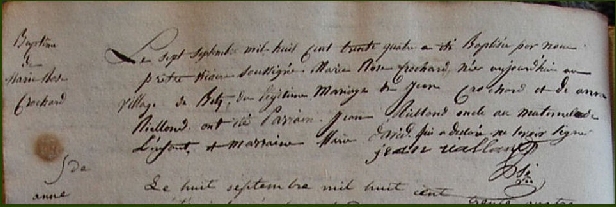 Baptême
de
Marie Rose
Crochard
Le sept septembre mil huit cent trente quatre a été Baptisée par nous
prêtre vicaire soussigné Marie Rose Crochard, née aujourd'hui au
village de du légitime Mariage de Jean Crochard et d'anne
Riallond ont été Parrain Jean Riallond oncle au maternel de
L'enfant, et marraine Marie David, qui a déclaré ne savoir signer
jean rialland
Le huit septembre mil huit cent
anne